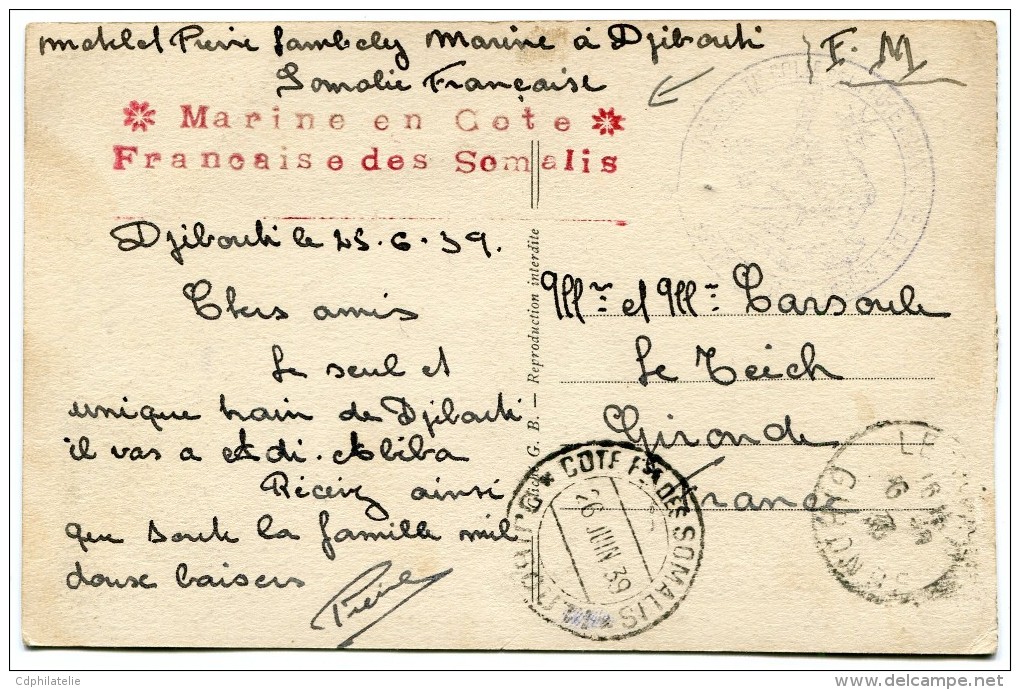 matelot Pierre Lambely Marine à Djibouti
Somalie Française
F. M
* Marine en Cote *
Francaise des Somalis
Djibouti le 25.6.39.
Chers amis
Le seul et
unique train de Djibouti
il vas a Adi. Abiba
Récévez ainsi
que toute la famille mil
doux baisers
Pierre
G. B. — Reproduction interdite
Mr et Mme Tarsoule
Le Teich
Gironde
France
COTE Fse DES SOMALIS
26 JUIN 39
DJIBOUTI
LE
GIRONDE
Cdphilatelie
www.delcampe.net